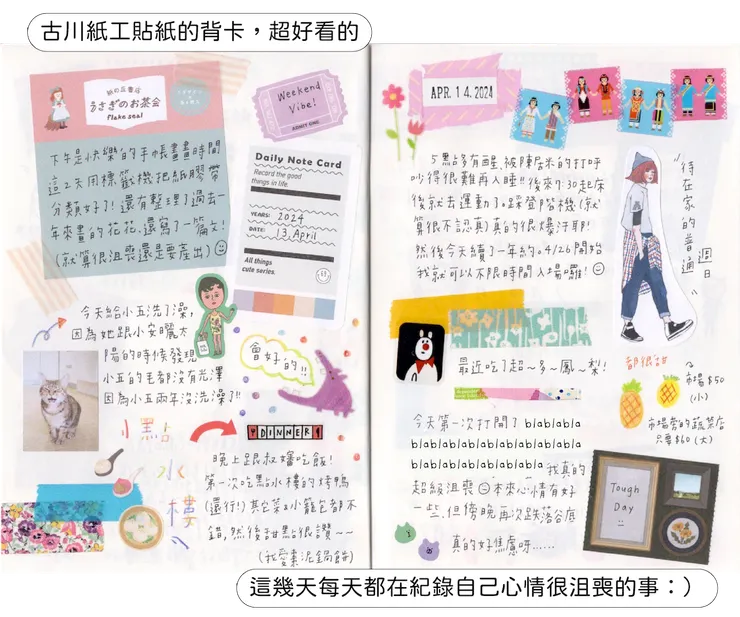 古川紙工貼紙的背卡，超好看的
紙の文書店
うさぎのお茶会
flake seal
下午是快樂的手帳畫畫時間
這2天用標籤機把紙膠帶
分類好了！還有整理了過去
年來畫的花花，還寫了一篇文！
（就算很沮喪還是要產出）
Weekend
Vibe!
ADMIT ONE
Daily Note Card
Record the good
things in life.
YEARS: 2024
DATE: 13. April
All things
cute series.
今天給小五洗了澡，
因為她跟小安曬太
陽的時候發現
小五的毛都沒有光澤
因為小五兩年沒洗澡了!!
會好的!!
小點
水
樓
DINNER
晚上跟叔嬸吃飯！
第一次吃點水樓的烤鴨
（還行！）其它菜&小籠包都不
錯，然後甜點很讚~~
（我愛棗泥鍋餅）
APR. 14. 2024
5點多有醒，被陳居米的打呼
吵得很難再入睡!! 後來7:30起床
後就去運動了→踩登階機（就
算很不認真）真的很爆汗耶！
然後今天續了一年約。4/26開始
我就可以不限時間入場囉！
待在家的普通週日
最近吃了超~多~鳳~梨！
都很甜
市場$50
（小）
市場旁的蔬菜店
只要$60（大）
今天第一次打開了blablabla
blablablablablablablablablabla
blablablablablablablabla我真的
超級沮喪 本來心情有好
一些，但傍晚再次跌落谷底
真的好焦慮呀……
Tough
Day
這幾天每天都在紀錄自己心情很沮喪的事：）